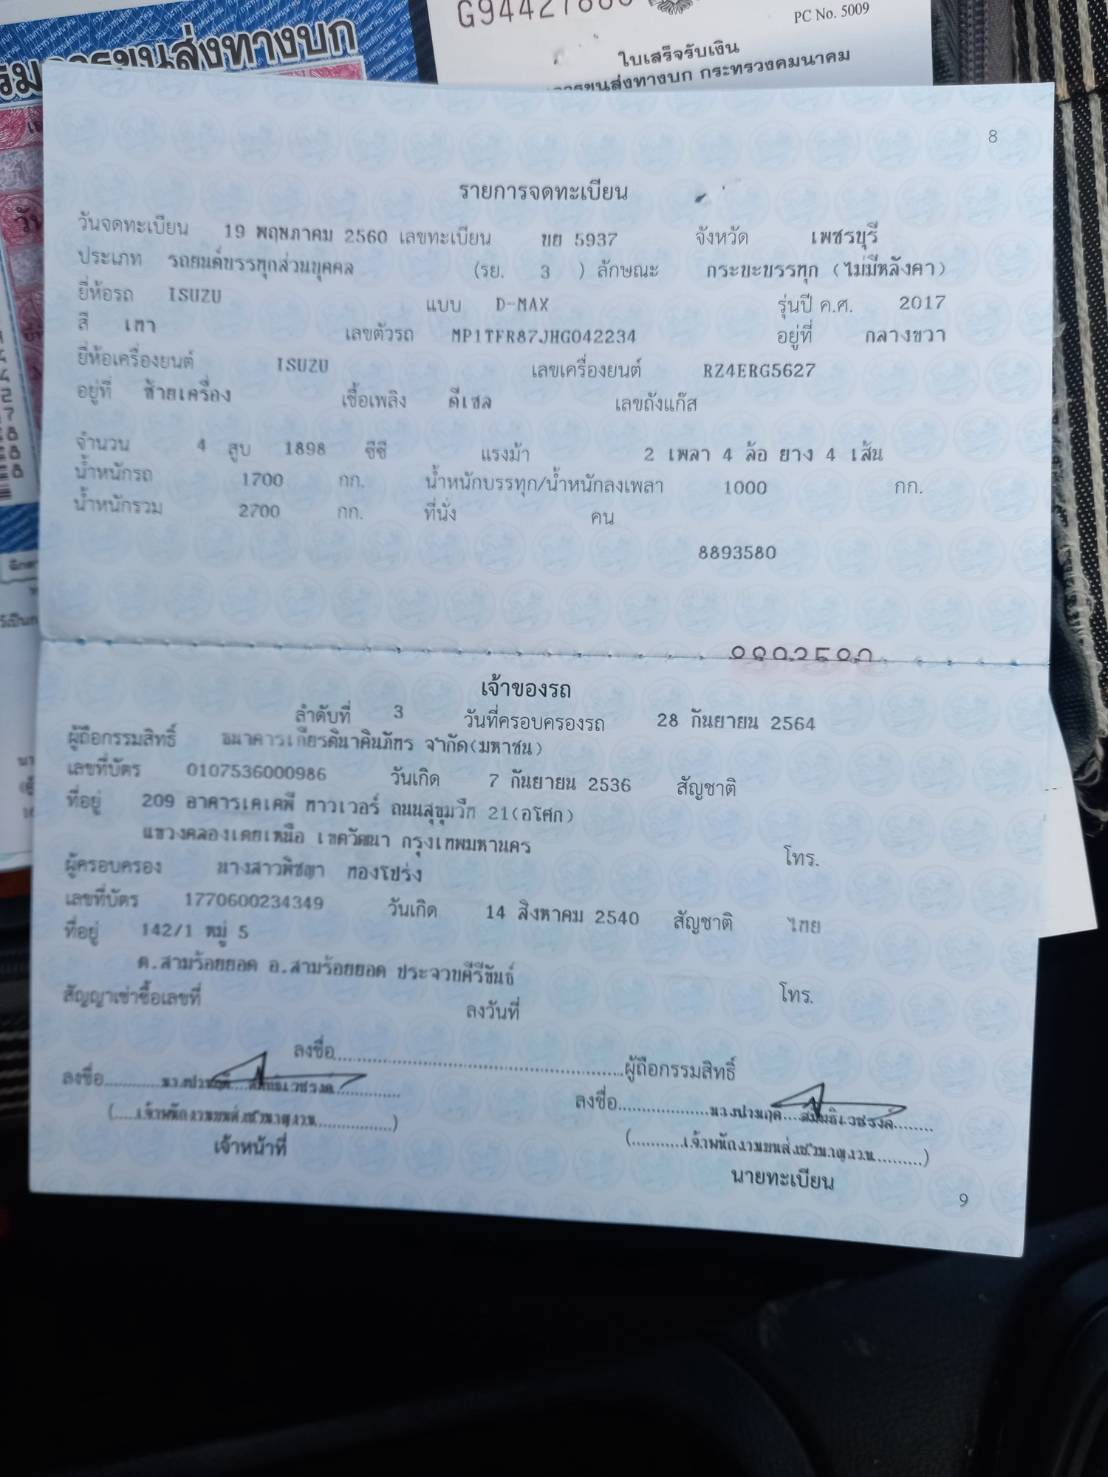 กรมการขนส่งทางบก
PC No. 5009
ใบเสร็จรับเงิน
กระทรวงคมนาคม
8
รายการจดทะเบียน
วันจดทะเบียน 19 พฤษภาคม 2560 เลขทะเบียน ขย 5937 จังหวัด เพชรบุรี
ประเภท รถยนต์บรรทุกส่วนบุคคล (รย. 3 ) ลักษณะ กระบะบรรทุก (ไม่มีหลังคา)
ยี่ห้อรถ ISUZU แบบ D-MAX รุ่นปี ค.ศ. 2017
สี เทา เลขตัวรถ MP1TFR87JHG042234 อยู่ที่ กลางขวา
ยี่ห้อเครื่องยนต์ ISUZU เลขเครื่องยนต์ RZ4ERG5627
อยู่ที่ ซ้ายเครื่อง เชื้อเพลิง ดีเซล เลขถังแก๊ส
จำนวน 4 สูบ 1898 ซีซี แรงม้า 2 เพลา 4 ล้อ ยาง 4 เส้น
น้ำหนักรถ 1700 กก. น้ำหนักบรรทุก/น้ำหนักลงเพลา 1000 กก.
น้ำหนักรวม 2700 กก. ที่นั่ง คน
8893580
เจ้าของรถ
ลำดับที่ 3 วันที่ครอบครองรถ 28 กันยายน 2564
ผู้ถือกรรมสิทธิ์ ธนาคารเกียรตินาคินภัทร จำกัด(มหาชน)
เลขที่บัตร 0107536000986 วันเกิด 7 กันยายน 2536 สัญชาติ
ที่อยู่ 209 อาคารเคเคพี ทาวเวอร์ ถนนสุขุมวิท 21(อโศก)
แขวงคลองเตยเหนือ เขตวัฒนา กรุงเทพมหานคร
โทร.
ผู้ครอบครอง นางสาวพิชญา ทองโปร่ง
เลขที่บัตร 1770600234349 วันเกิด 14 สิงหาคม 2540 สัญชาติ ไทย
ที่อยู่ 142/1 หมู่ 5
ต.สามร้อยยอด อ.สามร้อยยอด ประจวบคีรีขันธ์
โทร.
สัญญาเช่าซื้อเลขที่ ลงวันที่
ลงชื่อ ผู้ถือกรรมสิทธิ์
ลงชื่อ
ลงชื่อ
(เจ้าพนักงานขนส่งชำนาญงาน)
(เจ้าพนักงานขนส่งชำนาญงาน)
เจ้าหน้าที่
นายทะเบียน
9